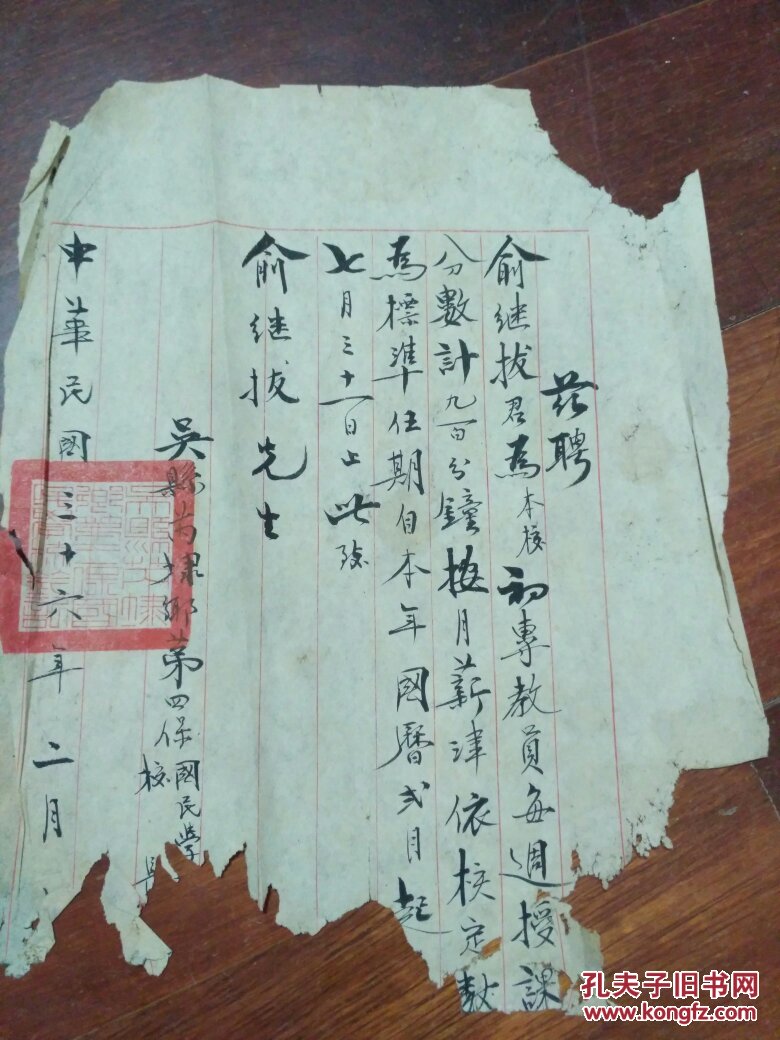 茲聘
俞继拔君為本校初專教員每週授課
分數計九百分鐘按月薪津依核定数
為標準任期自本年國曆弍月起
七月三十一日止此致
俞继拔先生
吳縣尚埭鄉第四保國民學校
中華民國三十六年二月
孔夫子旧书网
www.kongfz.com